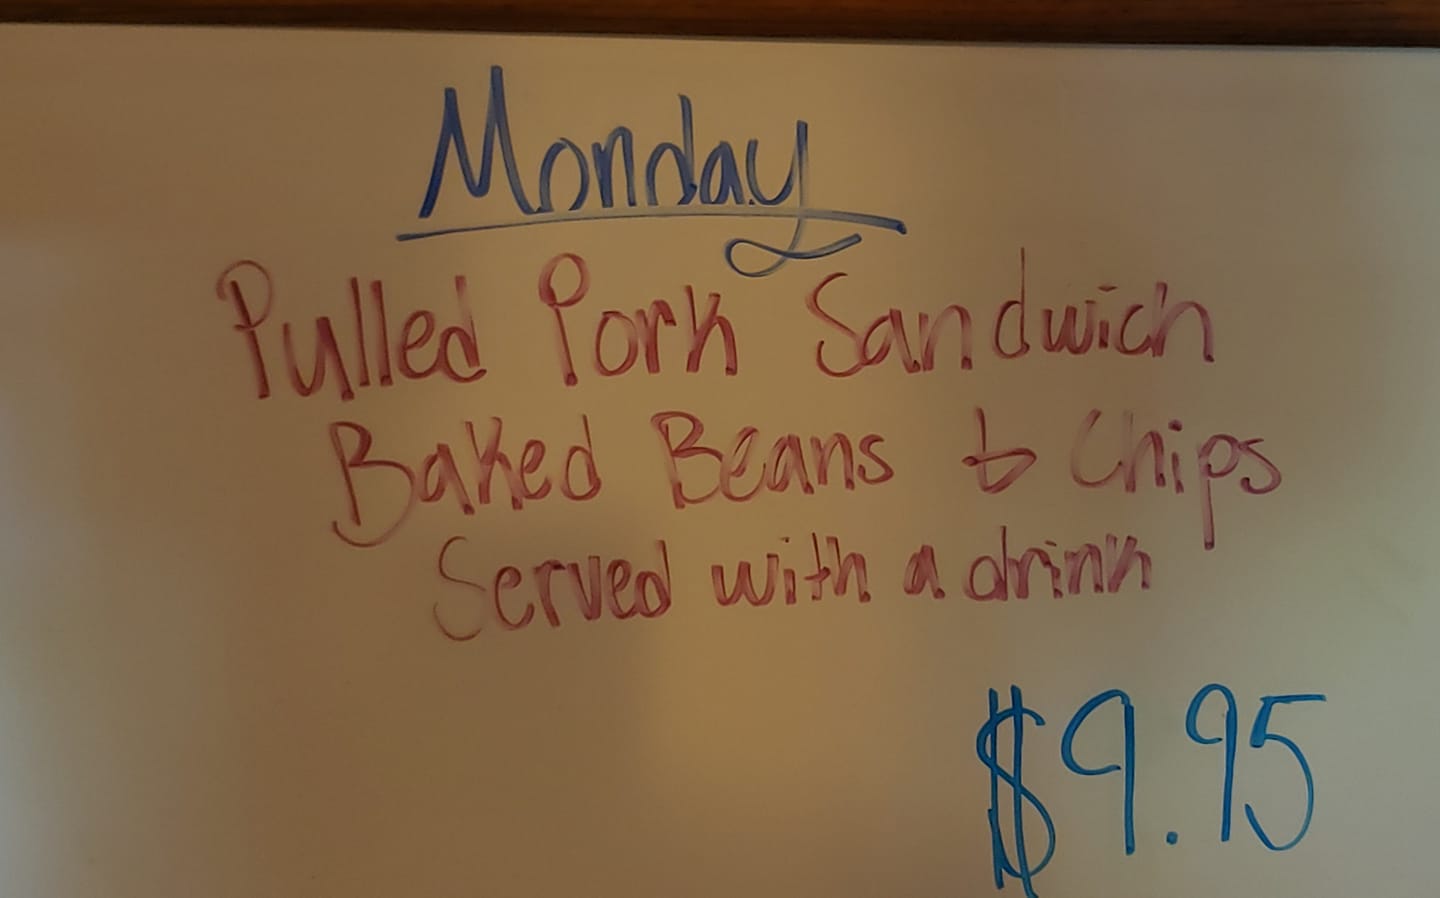 Monday
Pulled Pork Sandwich
Baked Beans & Chips
Served with a drink
$9.95